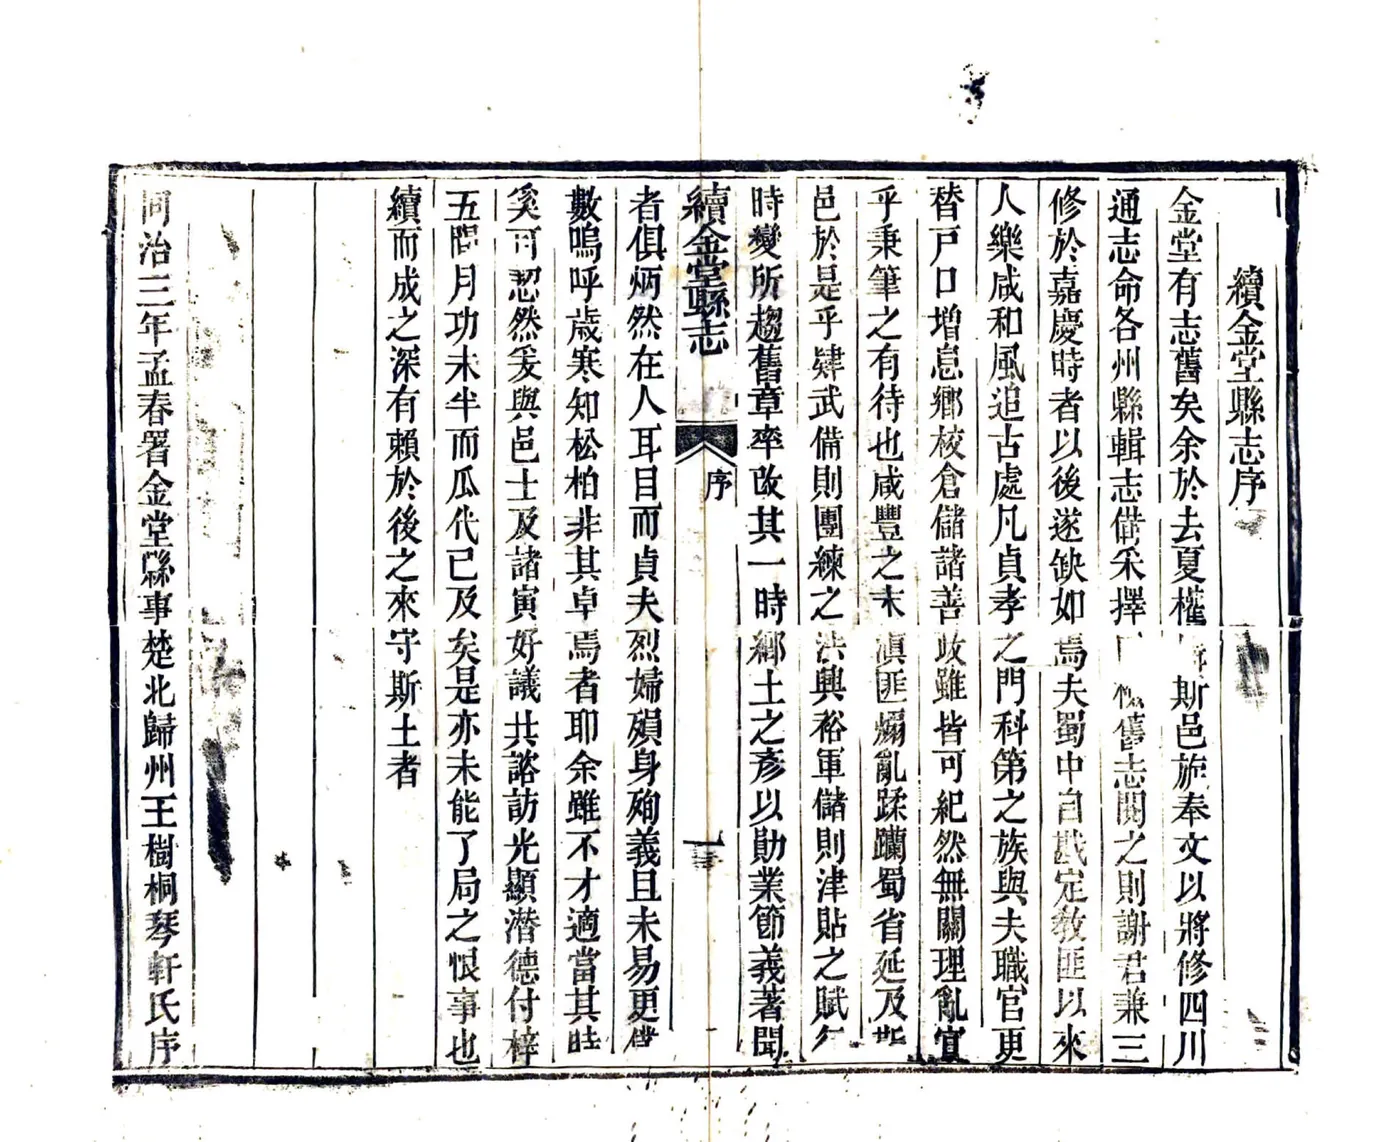 續金堂縣志序
金堂有志舊矣余於去夏權斯邑旋奉文以將修四川
通志命各州縣輯志備采擇舊志閱之則謝君兼三
修於嘉慶時者以後遂缺如焉夫蜀中自戡定教匪以來
人樂咸和風追古處凡貞孝之門科第之族與夫職官更
替戸口增息鄉校倉儲諸善政雖皆可紀然無關理亂宜
乎秉筆之有待也咸豐之末滇匪煽亂蹂躪蜀省延及
邑於是乎肄武備則團練之法興裕軍儲則津貼之賦
時變所趨舊章率改其一時鄉土之彥以勛業節義著聞
續金堂縣志
序
一
者俱炳然在人耳目而貞夫烈婦殞身殉義且未易更僕
數嗚呼歲寒知松柏非其卓焉者耶余雖不才適當其時
奚可恝然爰與邑士及諸寅好議共諮訪光顯潛德付梓
五閱月功未半而瓜代已及矣是亦未能了局之恨事也
續而成之深有賴於後之來守斯土者
同治三年孟春署金堂縣事楚北歸州王樹桐琴軒氏序